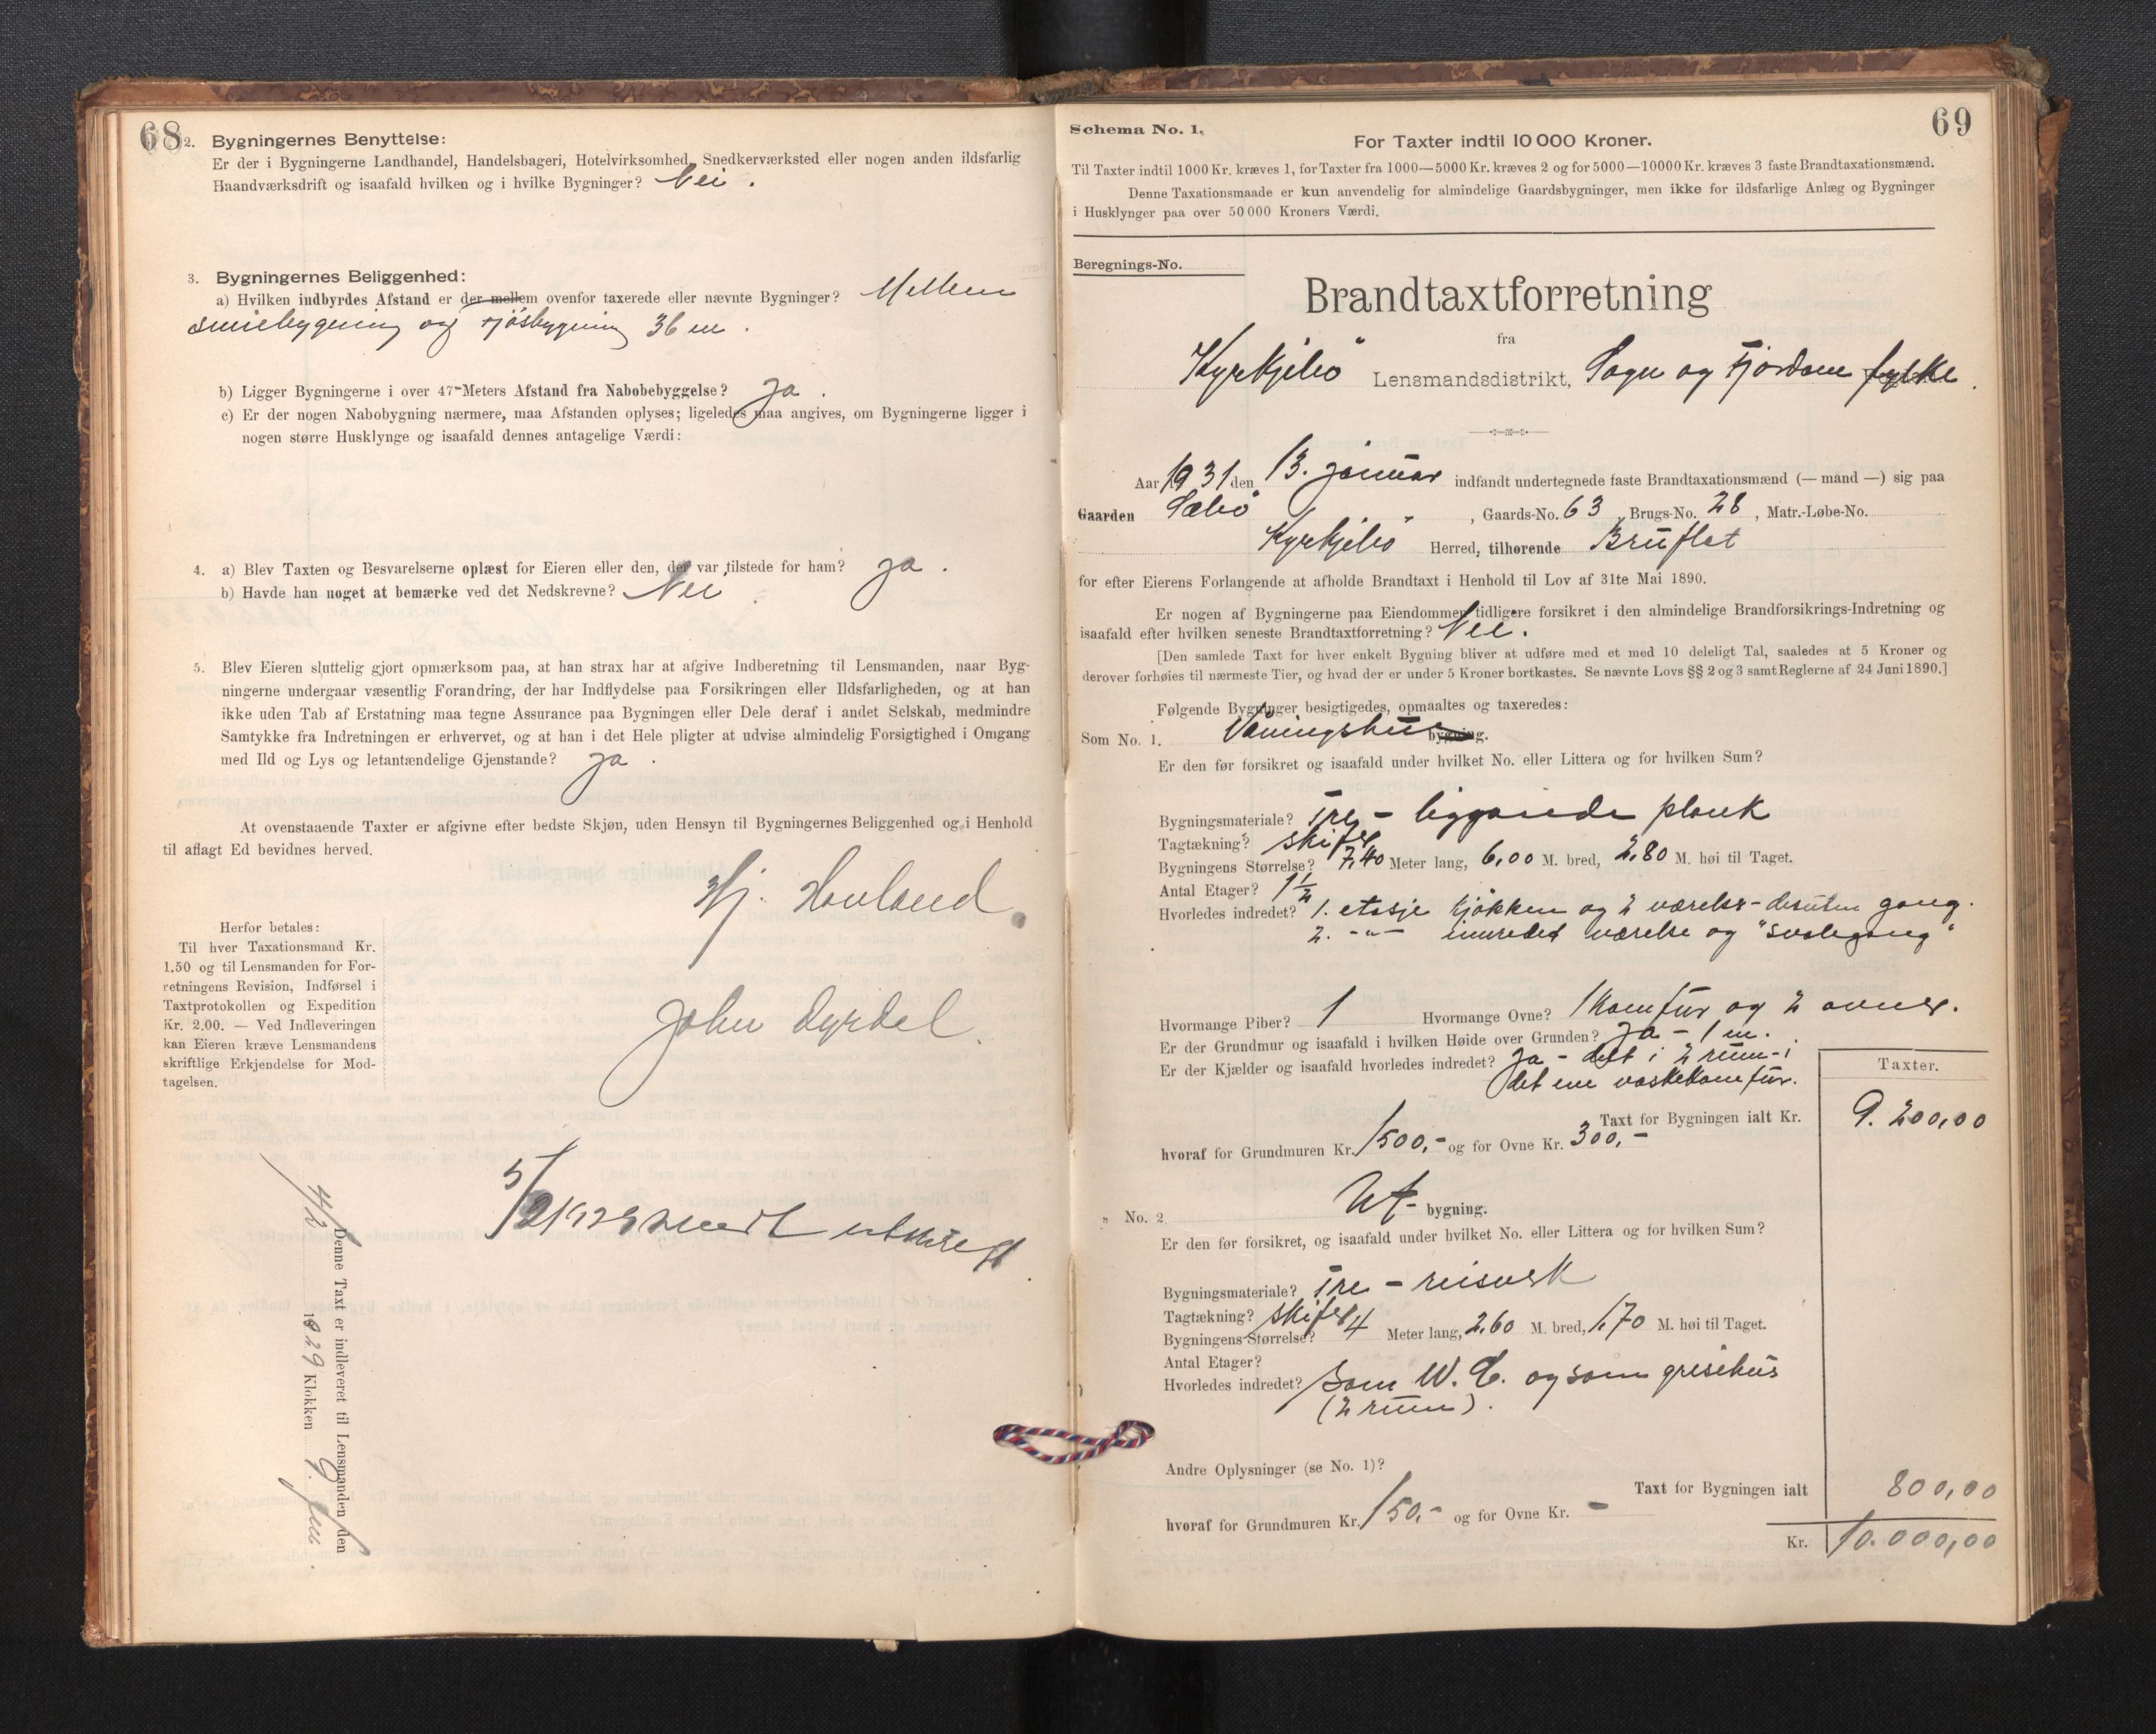 68
2. Bygningernes Benyttelse:
Er der i Bygningerne Landhandel, Handelsbageri, Hotelvirksomhed, Snedkerværksted eller nogen anden ildsfarlig
Haandværksdrift og isaafald hvilken og i hvilke Bygninger? Nei.
3. Bygningernes Beliggenhed:
a) Hvilken indbyrdes Afstand er der mellem ovenfor taxerede eller nævnte Bygninger? Mellem
smiebygning og fjøsbygning 36 m.
b) Ligger Bygningerne i over 47 Meters Afstand fra Nabobebyggelse? Ja.
c) Er der nogen Nabobygning nærmere, maa Afstanden oplyses; ligeledes maa angives, om Bygningerne ligger i
nogen større Husklynge og isaafald dennes antagelige Værdi:
4. a) Blev Taxten og Besvarelserne oplæst for Eieren eller den, der var tilstede for ham? Ja.
b) Havde han noget at bemærke ved det Nedskrevne? Nei.
5. Blev Eieren sluttelig gjort opmærksom paa, at han strax har at afgive Indberetning til Lensmanden, naar Byg-
ningerne undergaar væsentlig Forandring, der har Indflydelse paa Forsikringen eller Ildsfarligheden, og at han
ikke uden Tab af Erstatning maa tegne Assurance paa Bygningen eller Dele deraf i andet Selskab, medmindre
Samtykke fra Indretningen er erhvervet, og at han i det Hele pligter at udvise almindelig Forsigtighed i Omgang
med Ild og Lys og letantændelige Gjenstande? Ja.
At ovenstaaende Taxter er afgivne efter bedste Skjøn, uden Hensyn til Bygningernes Beliggenhed og i Henhold
til aflagt Ed bevidnes herved.
Hj. Hovland
John Dyrdal.
Herfor betales:
Til hver Taxationsmand Kr.
1.50 og til Lensmanden for For-
retningens Revision, Indførsel i
Taxtprotokollen og Expedition
Kr. 2.00. — Ved Indleveringen
kan Eieren kræve Lensmandens
skriftlige Erkjendelse for Mod-
tagelsen.
5/2 1929 sendt utskrift
Denne Taxt er indleveret til Lensmanden den
4/2 1929 Klokken 9. fm.
69
Schema No. 1.
For Taxter indtil 10 000 Kroner.
Til Taxter indtil 1000 Kr. kræves 1, for Taxter fra 1000—5000 Kr. kræves 2 og for 5000—10000 Kr. kræves 3 faste Brandtaxationsmænd.
Denne Taxationsmaade er kun anvendelig for almindelige Gaardsbygninger, men ikke for ildsfarlige Anlæg og Bygninger
i Husklynger paa over 50 000 Kroners Værdi.
Beregnings-No.
Brandtaxtforretning
fra
Kyrkjebø Lensmandsdistrikt, Sogn og Fjordane fylke.
Aar 1931 den 13. januar indfandt undertegnede faste Brandtaxationsmænd (— mand —) sig paa
Gaarden Sæbø, Gaards-No. 63, Brugs-No. 28, Matr.-Løbe-No.
Kyrkjebø Herred, tilhørende Bruflat
for efter Eierens Forlangende at afholde Brandtaxt i Henhold til Lov af 31te Mai 1890.
Er nogen af Bygningerne paa Eiendommen tidligere forsikret i den almindelige Brandforsikrings-Indretning og
isaafald efter hvilken seneste Brandtaxtforretning? Nei.
[Den samlede Taxt for hver enkelt Bygning bliver at udføre med et med 10 deleligt Tal, saaledes at 5 Kroner og
derover forhøies til nærmeste Tier, og hvad der er under 5 Kroner bortkastes. Se nævnte Lovs §§ 2 og 3 samt Reglerne af 24 Juni 1890.]
Følgende Bygninger besigtigedes, opmaaltes og taxeredes:
Som No. 1. Våningshus bygning.
Er den før forsikret og isaafald under hvilket No. eller Littera og for hvilken Sum?
Bygningsmateriale? Tre - liggande plank
Tagtækning? skifer
Bygningens Størrelse? 7,40 Meter lang, 6,00 M. bred, 2,80 M. høi til Taget.
Antal Etager? 1½
Hvorledes indredet? 1. etasje kjøkken og 2 værelser - desuten gang.
2. -"- innredet værelse og "svalegang"
Hvormange Piber? 1 Hvormange Ovne? 1 komfur og 2 ovner.
Er der Grundmur og isaafald i hvilken Høide over Grunden? Ja - 1 m.
Er der Kjælder og isaafald hvorledes indredet? Ja - delt i 2 rum - i
det ene vaskekomfur.
Taxter.
Taxt for Bygningen ialt Kr. 9.200,00
hvoraf for Grundmuren Kr. 1500,- og for Ovne Kr. 300,-
" No. 2. Ut- bygning.
Er den før forsikret, og isaafald under hvilket No. eller Littera og for hvilken Sum?
Bygningsmateriale? Tre - reisverk
Tagtækning? skifer
Bygningens Størrelse? 4 Meter lang, 2,60 M. bred, 1,70 M. høi til Taget.
Antal Etager?
Hvorledes indredet? Som W. C. og som grisehus
(2 rum).
Andre Oplysninger (se No. 1)?
Taxt for Bygningen ialt 800,00
hvoraf for Grundmuren Kr. 150,- og for Ovne Kr. -
Kr. 10.000,00